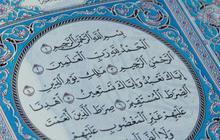 بِسْمِ اللَّهِ الرَّحْمَٰنِ الرَّحِيمِ ۝١
الْحَمْدُ لِلَّهِ رَبِّ الْعَالَمِينَ ۝٢
الرَّحْمَٰنِ الرَّحِيمِ ۝٣ مَالِكِ يَوْمِ الدِّينِ ۝٤
إِيَّاكَ نَعْبُدُ وَإِيَّاكَ نَسْتَعِينُ ۝٥ اهْدِنَا
الصِّرَاطَ الْمُسْتَقِيمَ ۝٦ صِرَاطَ الَّذِينَ أَنْعَمْتَ
عَلَيْهِمْ غَيْرِ الْمَغْضُوبِ عَلَيْهِمْ